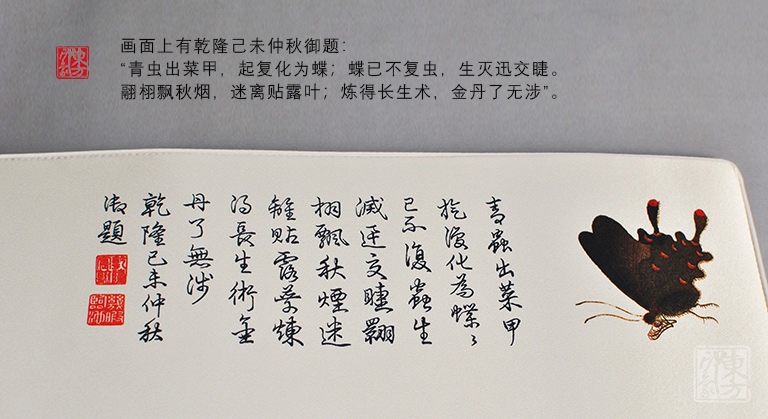 画面上有乾隆己未仲秋御题：
“青虫出菜甲，起复化为蝶；蝶已不复虫，生灭迅交睫。
翮栩飘秋烟，迷离贴露叶；炼得长生术，金丹了无涉”。
青蟲出菜甲
旋復化為蝶々
已不復蟲生
滅迅交睫翾
栩飄秋煙迷
離貼露葉煉
得長生術金
丹了無涉
乾隆己未仲秋
御題